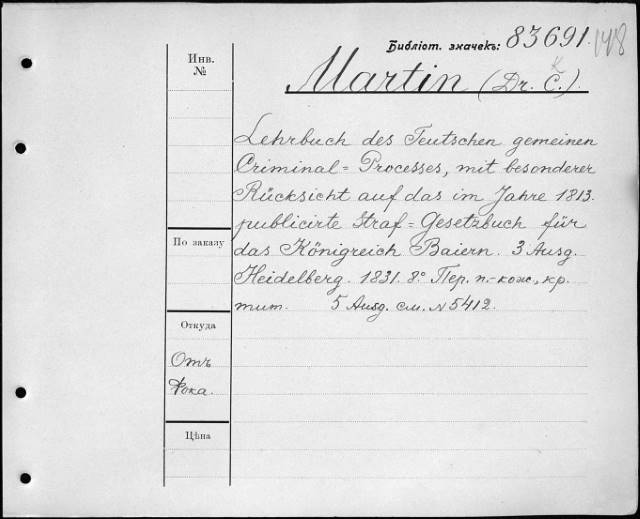 Библіот. значекъ: 83691. 148
Инв.
№
Martin (Dr. C.)
Lehrbuch des Teutschen gemeinen
Criminal=Processes, mit besonderer
Rücksicht auf das im Jahre 1813.
publicirte Straf=Gesetzbuch für
das Königreich Baiern. 3 Ausg.
Heidelberg. 1831. 8.° Пер. п.-кож., кр.
тит. 5 Ausg. см. № 5412.
По заказу
Откуда
Отъ
Фока.
Цѣна